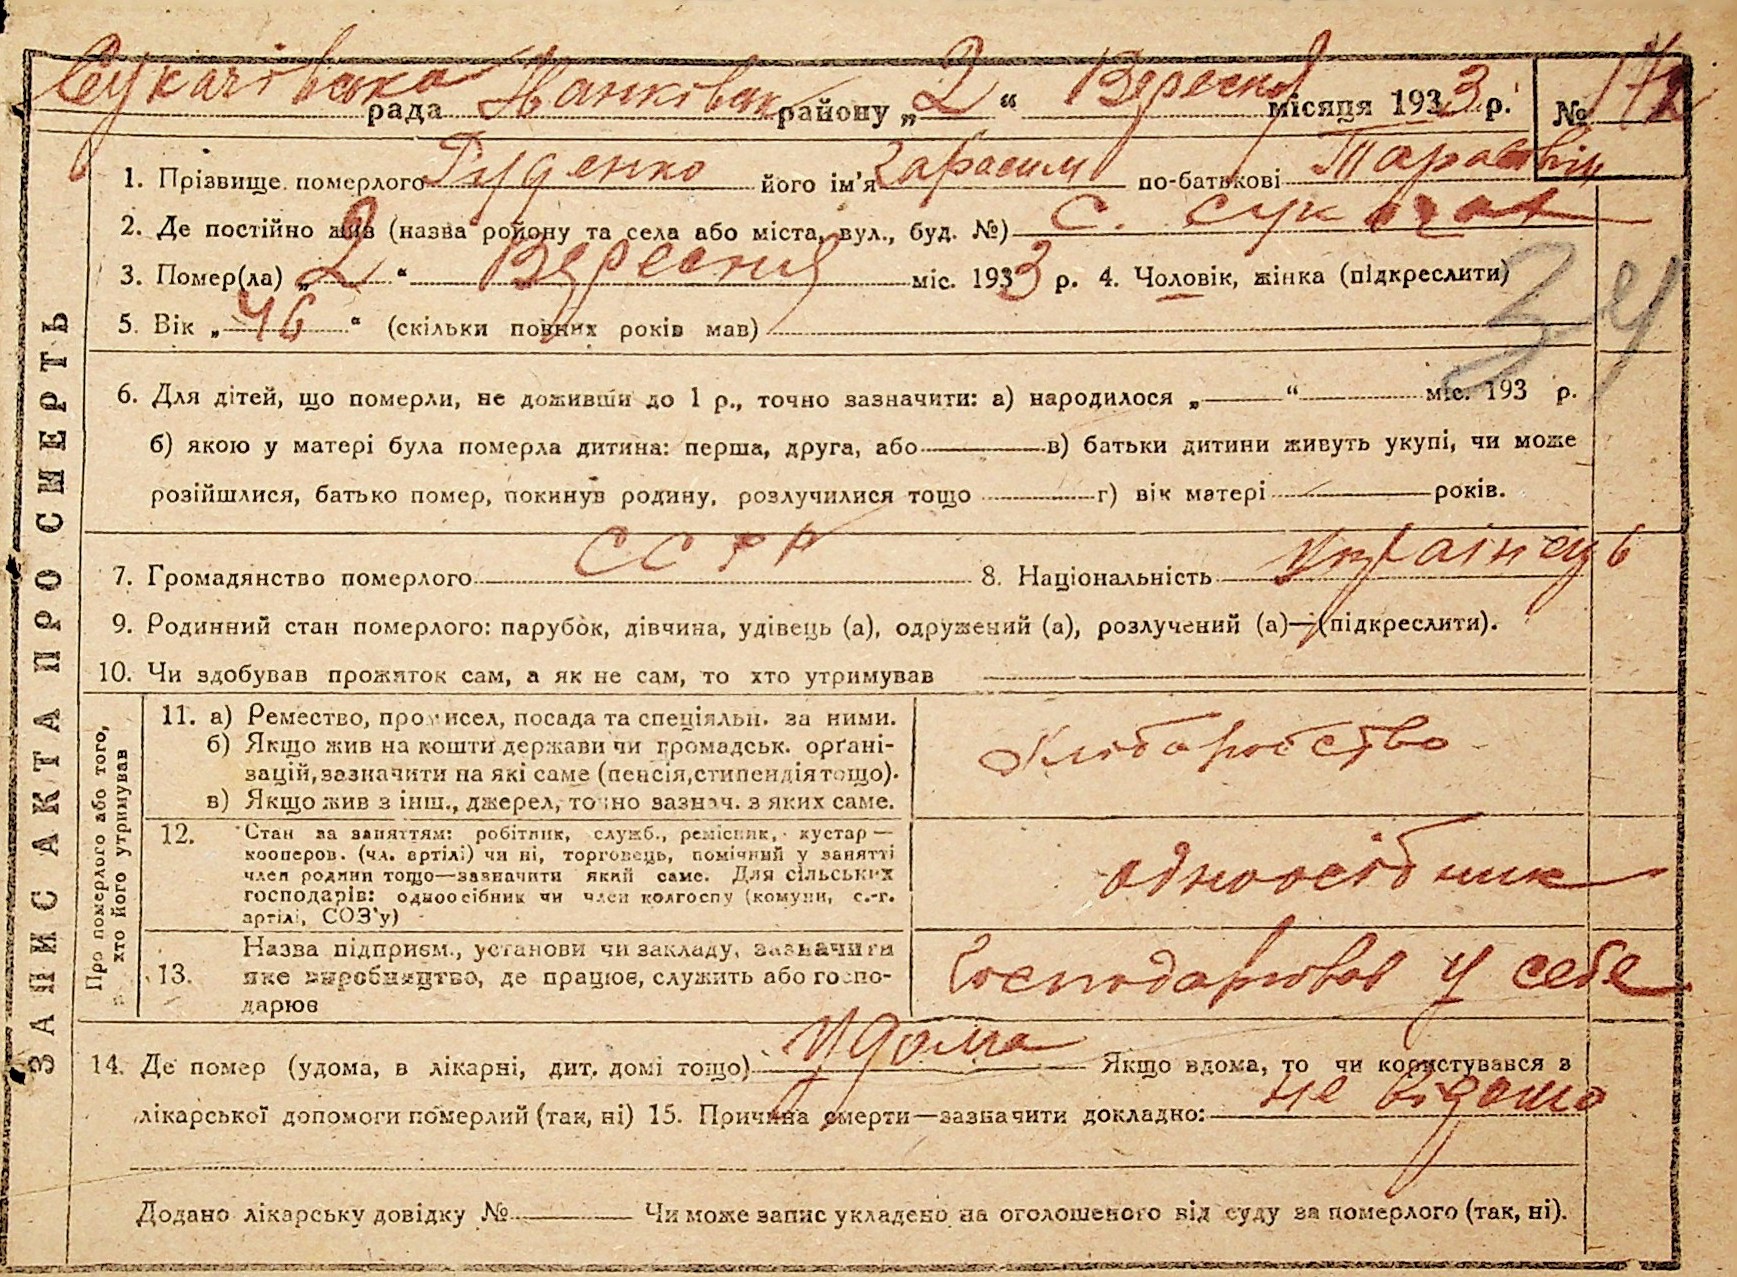 Сукачівська рада Іванківськ району „2“ Вересня місяця 1933 р. № 172
1. Прізвище померлого Руденко його ім'я Гарасим по-батькові Тарасовіч
2. Де постійно жив (назва району та села або міста, вул., буд. №) с. Сукачі
3. Помер(ла) „2“ Вересня міс. 1933 р. 4. Чоловік, жінка (підкреслити)
34
5. Вік „46“ (скільки повних років мав)
6. Для дітей, що померли, не доживши до 1 р., точно зазначити: а) народилося „ “ міс. 193 р.
б) якою у матері була померла дитина: перша, друга, або в) батьки дитини живуть укупі, чи може
розійшлися, батько помер, покинув родину, розлучилися тощо г) вік матері років.
7. Громадянство померлого СССР 8. Національність Українець
9. Родинний стан померлого: парубок, дівчина, удівець (а), одружений (а), розлучений (а)—(підкреслити).
10. Чи здобував прожиток сам, а як не сам, то хто утримував
ЗАПИС АКТА ПРО СМЕРТЬ
Про померлого або того,
хто його утримував
11. а) Ремество, промисел, посада та спеціяльн. за ними.
б) Якщо жив на кошти держави чи громадськ. орґані-
зацій, зазначити на які саме (пенсія, стипендія тощо).
в) Якщо жив з інш., джерел, точно зазнач. з яких саме.
Хліборобство
12. Стан за заняттям: робітник, служб., ремісник, кустар—
кооперов. (чл. артілі) чи ні, торговець, помічний у занятті
член родини тощо—зазначити який саме. Для сільських
господарів: одноосібник чи член колгоспу (комуни, с.-г.
артілі, СОЗ'у)
одноосібник
13. Назва підприєм., установи чи закладу, зазначити
яке виробництво, де працює, служить або госпо-
дарює
Господарював у себе
14. Де помер (удома, в лікарні, дит. домі тощо) Удома Якщо вдома, то чи користувався з
лікарської допомоги померлий (так, ні) 15. Причина смерти—зазначити докладно: не відомо
Додано лікарську довідку № Чи може запис укладено на оголошеного від суду за померлого (так, ні).